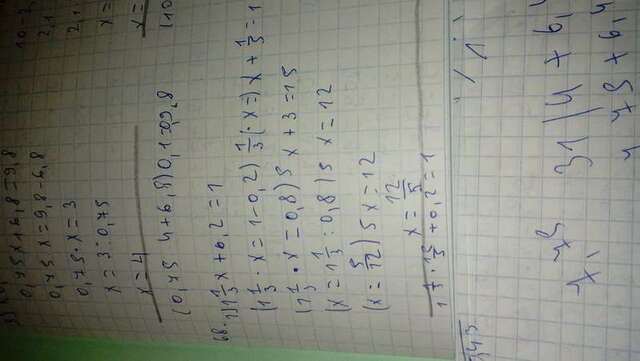 0,75x+6,8=9,8
0,75 x=9,8-6,8
0,75·x=3
x=3:0,75
x=4
(0,75 4+6,5)0,1=09,8
68. 1) 1 1/3 x+0,2=1
(1 1/3 · x=1-0,2) 1/3(·x=) x+1/3=1
(1 1/3 · x=0,8)5 x+3=15
(x=1 1/3 : 0,8)5 x=12
(x=5/12) 5x=12
x=12/5
+0,2=1
10-
2,1
2,1
x=
x=
(10
343
7,75 31/4+6,4
75+6,4